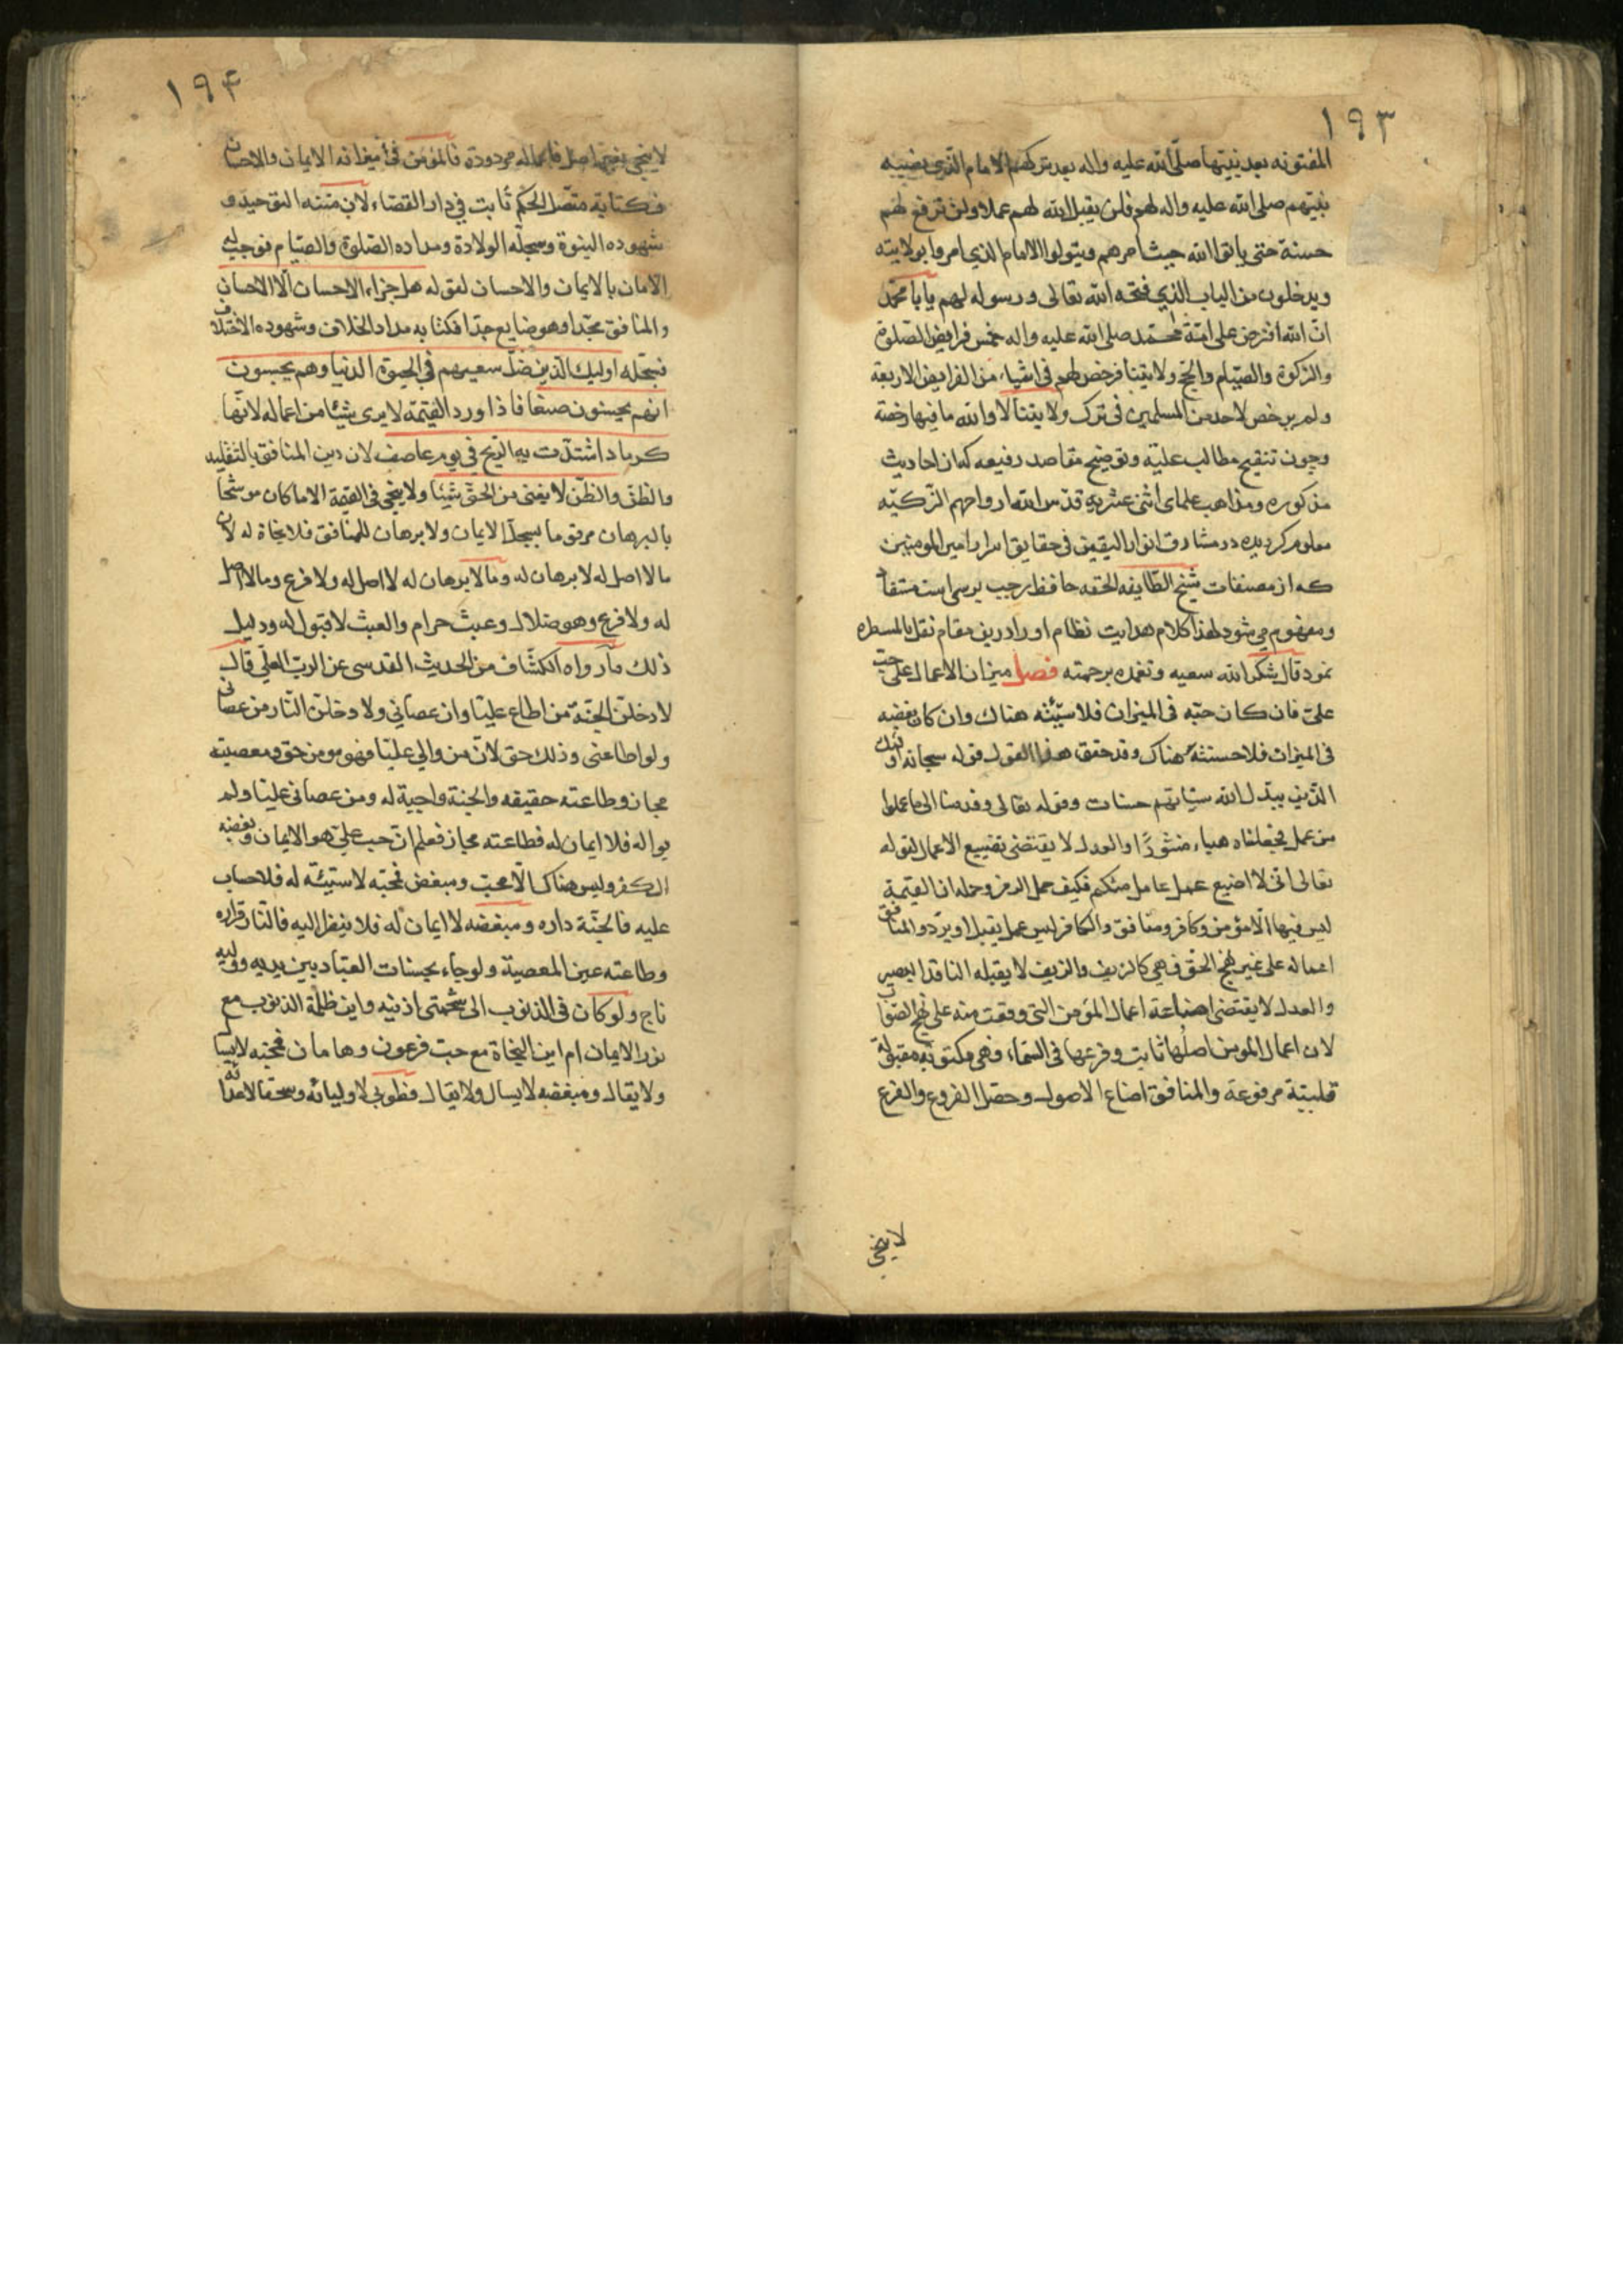 ١٩٣
المفتونه بعد نبيها صلى الله عليه واله بعد تركهم الامام الذي نصبه
نبيهم صلى الله عليه واله لهم فلن يقبل الله لهم عملا ولن ترفع لهم
حسنة حتى ياتوا الله حيث امرهم ويتولوا الامام الذي امروا بولايته
ويدخلون من الباب الذي فتحه الله تعالى ورسوله لهم يا با محمد
ان الله افترض على امة محمد صلى الله عليه واله خمس فرايض الصلوة
والزكوة والصيام والحج ولايتنا فرخص لهم في اشياء من الفرايض الاربعة
ولم يرخص لاحد من المسلمين في ترك ولايتنا لا والله ما فيها رخصة
وچون تنقيح مطالب عليّه وتوضيح مقاصد رفيعه كه از احاديث
مذكوره ومذاهب علماى اثنى عشريه قدس الله ارواحهم الزكيّه
معلوم كرديده در مشارق انوار اليقين في حقايق اسرار امير المومنين
كه از مصنفات شيخ الطايفه المحقه حافظ رجب برسى است مستفاد
ومفهوم مى شود لهذا كلام هدايت نظام او را درين مقام نقل بالمسطره
نمود قال شكر الله سعيه وتغمده برحمته فصل ميزان الاعمال على حب
علي فان كان حبه في الميزان فلا سيّئة هناك وان كان بغضه
في الميزان فلا حسنة هناك وقد حقق هذا القول قوله سبحانه اولئك
الذين يبدل الله سيّاتهم حسنات وقوله تعالى وقدمنا الى ما عملوا
من عمل فجعلناه هباء منثورًا والعدل لا يقتضى تضييع الاعمال لقوله
تعالى انى لا اضيع عمل عامل منكم فكيف حمل الرمز وحله ان القيمة
ليس فيها الا مؤمن وكافر ومنافق والكافر ليس عمل يقبل او يرد والمنافق
اعماله على غير نهج الحق فهي كالزيف والزيف لا يقبله الناقد البصير
والعدل لا يقتضى اضاعة اعمال المؤمن التى وقعت منه على نهج الصواب
لان اعمال المومن اصلها ثابت وفرعها في السماء فهى مكتوبة مقبولة
قلبيّة مرفوعة والمنافق اضاع الاصول وحصل الفروع والفرع
لاينجى
١٩۴
لا ينجى بغير اصل فاعماله مردودة فالمؤمن في ميزانه الايمان والاحسان
فكتابه متصل الحكم ثابت في دار القضاء لان متنه التوحيد و
شهوده النبوة وسجله الولاية ومداده الصلوة والصيام فوجب له
الامان بالايمان والاحسان لقوله هل جزاء الاحسان الا الاحسان
والمنافق وهو ضايع جدا فكتابه مداد الخلاف وشهوده الاختلاف
فسجله اوليك الذين ضلّ سعيهم في الحيوة الدنيا وهم يحسبون
انهم يحسنون صنعا فاذا ورد القيمة لا يرى شيئا من اعماله لانّها
كرماد اشتدّت به الريح في يوم عاصف لان دين المنافق بالتقليد
والظنّ والظنّ لا يغنى من الحقّ شيئا ولا ينجى في القيمة الا ما كان موشحًا
بالبرهان مرقوما بسجل الايمان ولا برهان للمنافق فلا نجاة له لان
ما لا اصل له لا برهان له وما لا برهان له لا اصل له ولا فرع وما لا اصل
له ولا فرع وهو ضلال وعبث حرام والعبث لا قبول له ودليل
ذلك ما رواه الكشاف من الحديث القدسى عن الرب العلى قال
لادخلن الجنة من اطاع عليّا وان عصانى ولا دخلن النار من عصاه
ولو اطاعنى وذلك حق لان من والى عليّا فهو مومن حق ومعصيته
مجاز وطاعته حقيقه والجنة واجبة له ومن عصانى عليّا ولم
يواله فلا ايمان له فطاعته مجاز فعلم ان حب علي هو الايمان وبغضه
الكفر وليس هناك الا محبّ ومبغض فمحبه لا سيّئه له فلا حساب
عليه فالجنّة داره ومبغضه لا ايمان له فلا ينظر اليه فالنار قراره
وطاعته عين المعصية ولو جاء بحسنات العباد بين يديه ووليه
ناج ولو كان في الذنوب الى شحمتى اذنيه واين ظلمة الذنوب مع
نور الايمان ام اين النجاة مع حب فرعون وهامان فمحبه لا يسال
ولا يقال ومبغضه لا يسال ولا يقال فطوبى لاوليائه وسحقا لاعدائه